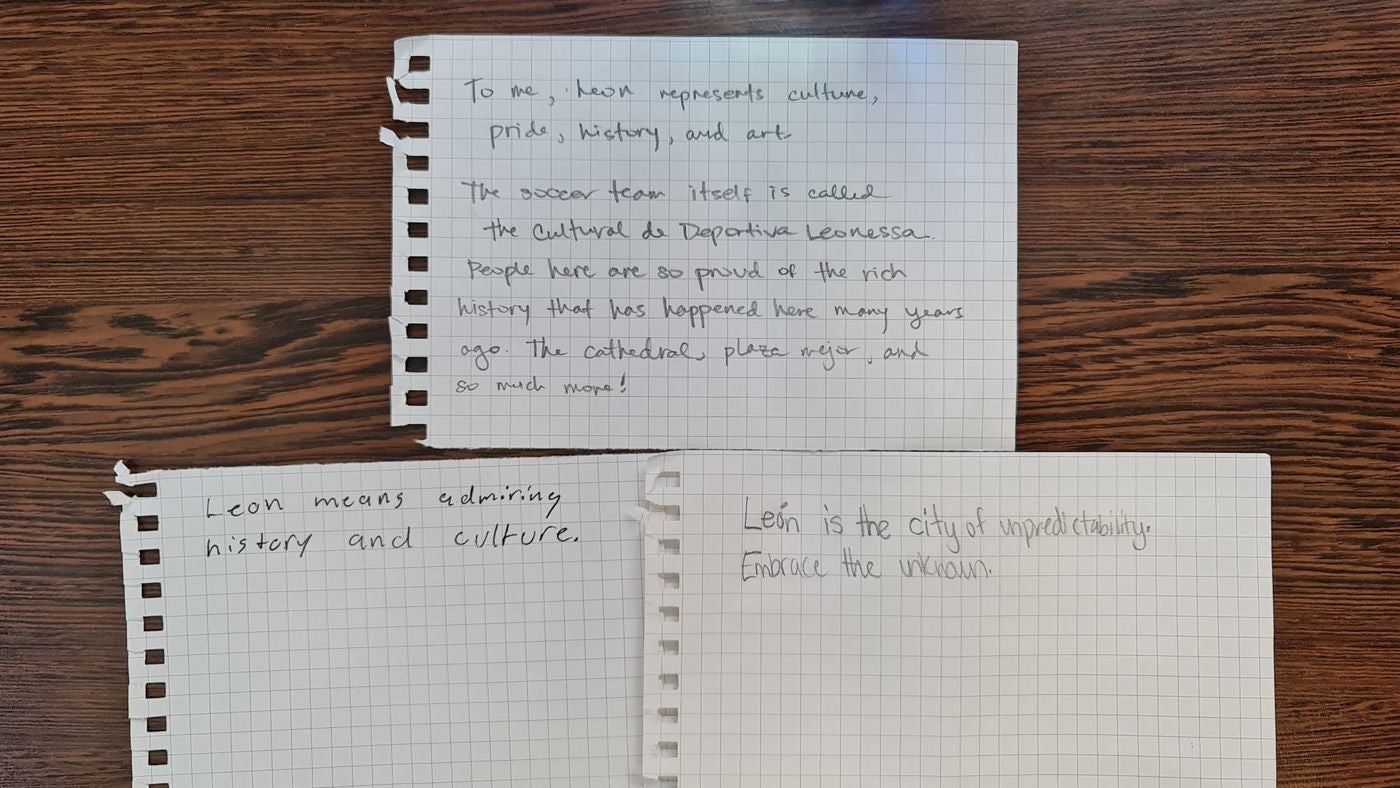 To me, Leon represents culture,
pride, history, and art.
The soccer team itself is called
the Cultural de Deportiva Leonessa.
People here are so proud of the rich
history that has happened here many years
ago. The cathedral, plaza mejor, and
so much more!
Leon means admiring
history and culture.
León is the city of unpredictability.
Embrace the unknown.